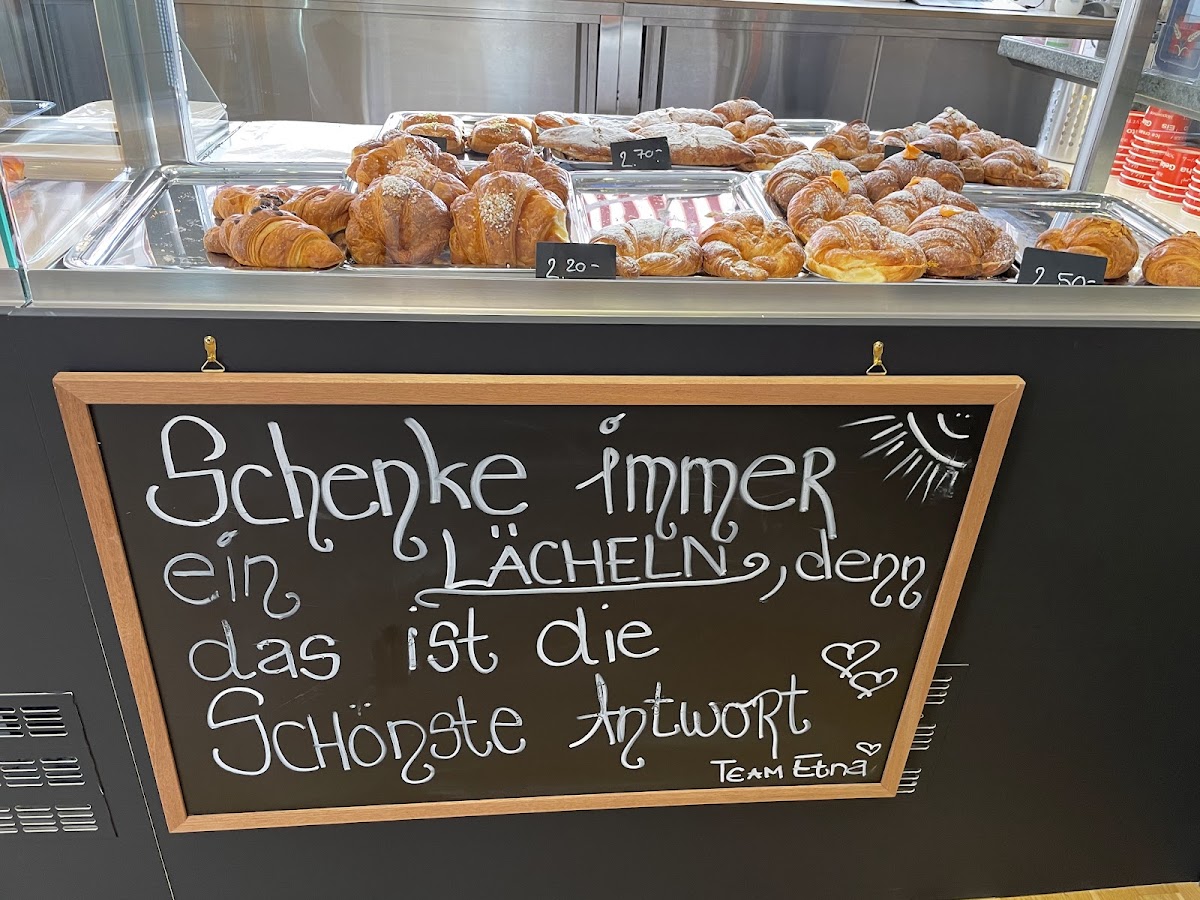 2.70.-
2,20.-
2,50.-
Schenke immer
ein LÄCHELN, denn
das ist die
Schönste Antwort
Team Etna